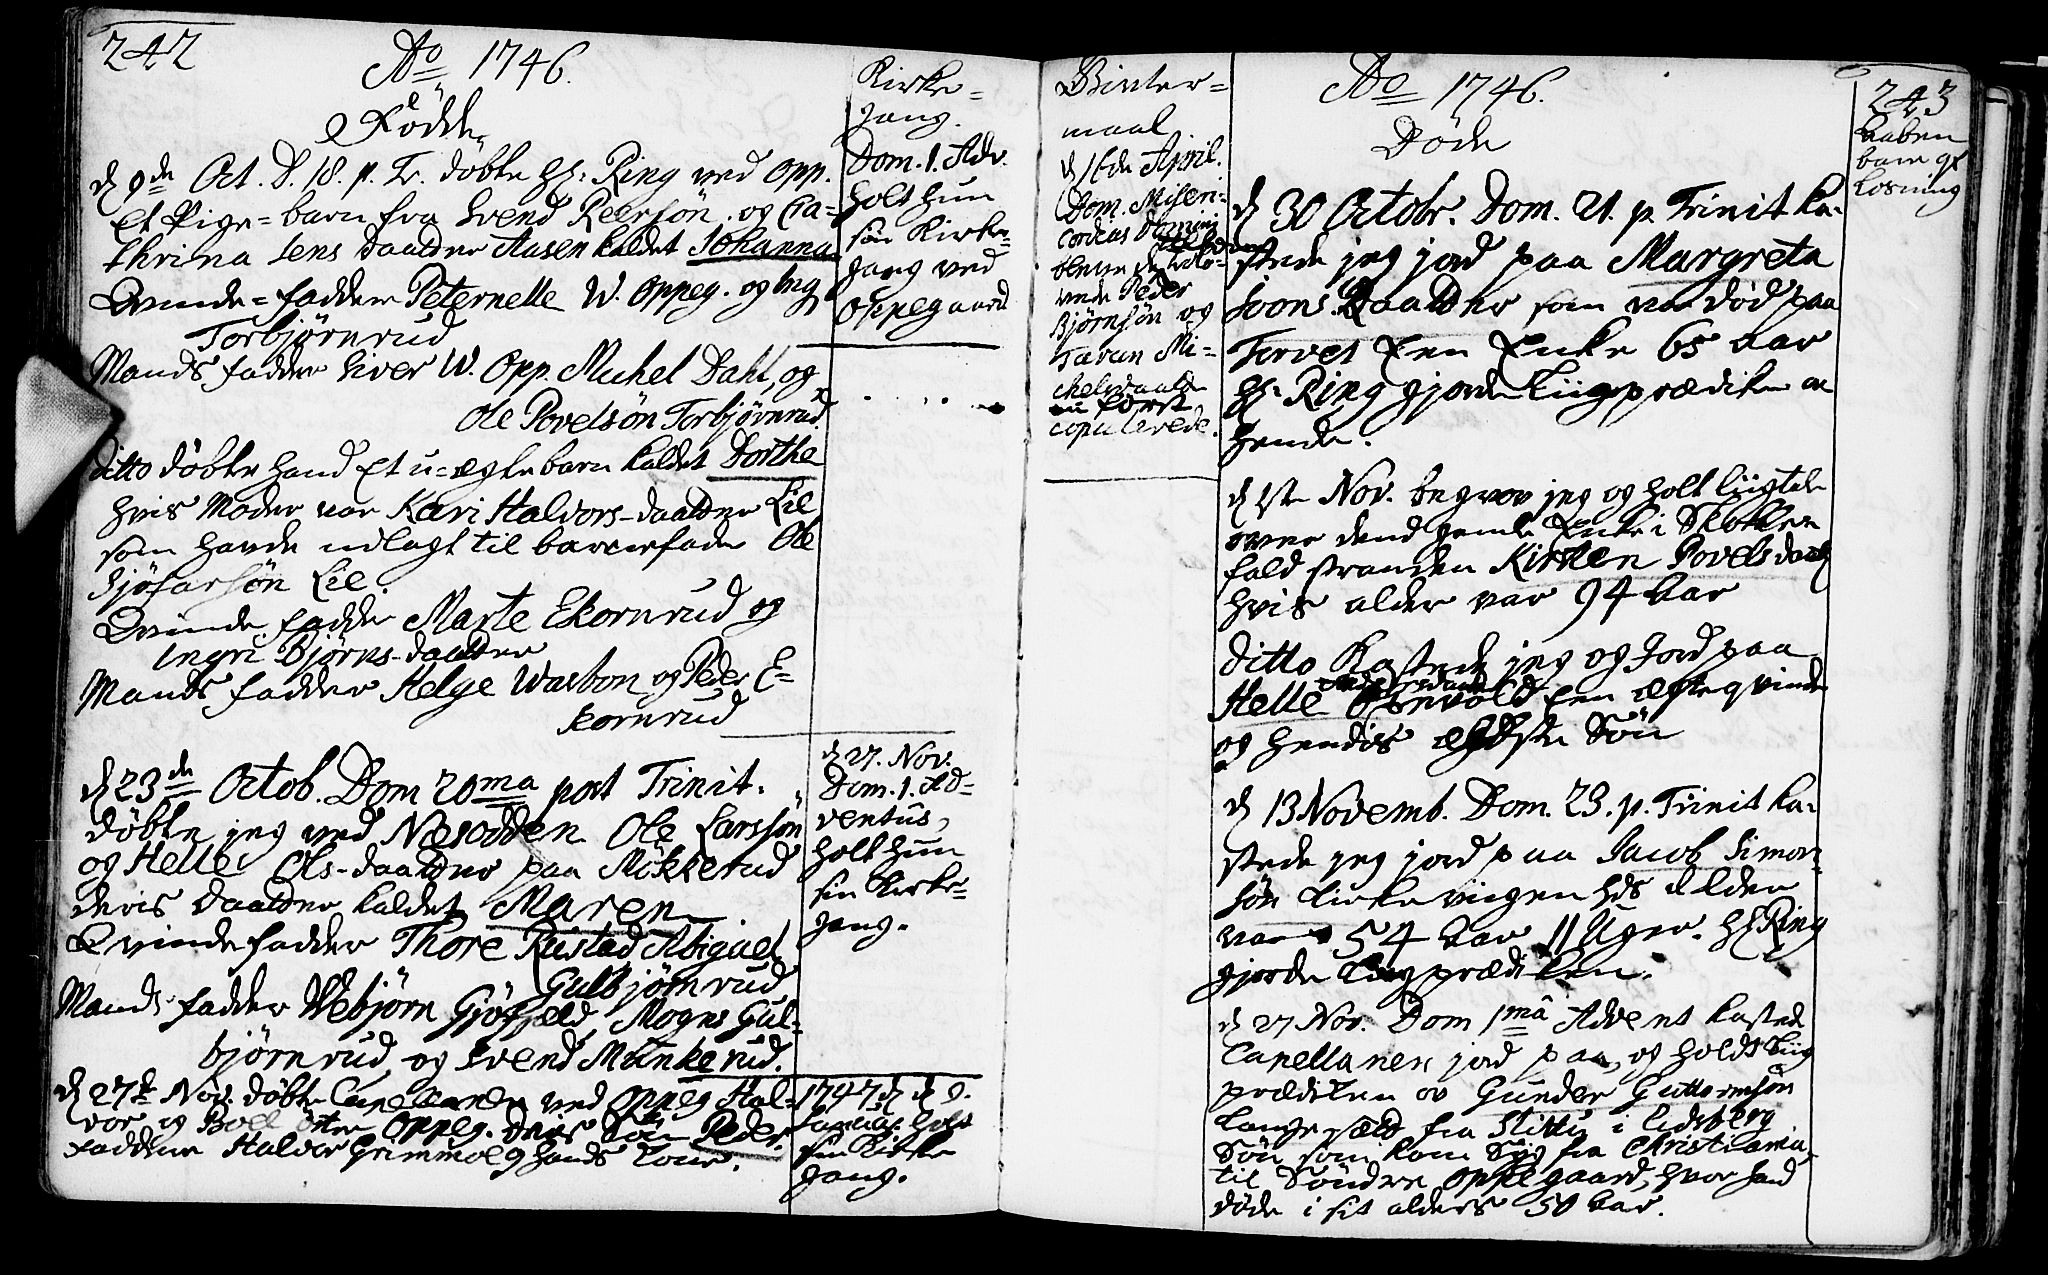 242
Ao 1746.
Födde
d 9de Oct. D. 18. p. Tr. döbte Hr: Ring ved Opp.
Et Pige=barn fra Svend Peersön og Ca-
thrina Jens Daatter Aasen kaldet Johanna
Qvinde=faddere Peternelle W. Oppeg. og Ing
Torbjörnrud
Mands faddere Siver W. Opp. Michel Dahl, og
Ole Povelsön Torbjörnrud.
Ditto döbte hand Et u=ægte barn kaldet Dorthe
hvis Moder var Kari Halvors=daatter Lil
som havde udlagt til barnefader Ole
Lil.
Qvinde fadder Marte Ekornrud og
Ingri Björns=daatter
Mands fadder Helge Warbon og Peder E=
kornrud
d 23de Octob. Dom 20ma post Trinit.
döbte jeg ved Næsodden Ole Larssön
og Helle Ols=daatter paa Mökkerud
deris daatter kaldet Maren
Qvindefadder Thore Rustad Abigael
Gulbjörnrud
Mands fadder Webjörn Gjöfjæld, Mogns Gul-
björnrud og Svend Munkerud.
d 27de Nov. döbte Capellanen ved Oppeg Hal-
vor og öster Oppeg. deres Sön Peder.
faddere Halvor Grimmol og hands Kone.
Kirke=
gang.
Dom. 1. Adv.
holt hun
sin Kirke=
gang ved
Oppegaard
d 27. Nov.
Dom. 1. Ad=
ventus,
holt hun
sin Kirke=
gang.
1747 d
holt
sin Kirke
gang.
maal
d 16de April.
Dom. Miseri=
cordias Domini
bleve
Peder
Björnsön og
Taran Mi=
chelsdaatter
först
copulerede.
Ao 1746.
Döde
d 30 Octobr. Dom. 21. p. Trinit ka-
stede jeg jord paa Margreta
Daatter som var död paa
Torvet Een Enke 65 aar
Hr: Ring gjorde Liigprædiken over
hende.
d 1ste Nov. begrov jeg og holt liigtale
over dend gamle Enke i Skokke
fald stranden Kirsten Povels daat
hvis alder var 94 Aar
Ditto Kastede jeg og Jord paa
Helle Een qvinde
og hendis Sön
d 13 Novemb. Dom. 23. p. Trinit ka-
stede jeg jord paa Jacob Simon
sön viigen hds Alder
var 54 Aar 11 Uger. Hr Ring
gjorde Liigprædiken.
d 27 Nov. Dom 1mâ Advent kastede
Capellanen jord paa, og holdt Liig
prædiken ov Gunder Guttormsön
fra i Eidsberg
Sön som kom Syg fra Christiania
til Söndre Oppegaard, hvor hand
döde i sit alders 50 Aar.
243
Aaben
bare
losning